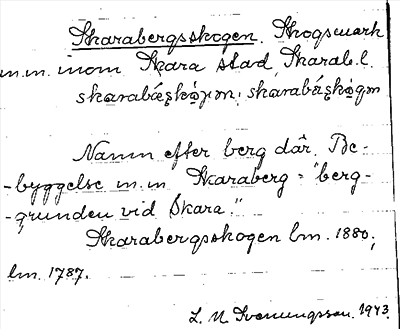 Skarabergsskogen. Skogsmark
m.m. inom Skara stad, Skarab. l.
skarabæ̀ʂkǫ́gən; skarabǽʂkǫ̀gən
Namn efter berg där. Be-
-byggelse m.m Skaraberg = "berg-
-grunden vid Skara."
Skarabergsskogen lm. 1880;
lm. 1787.
L. N Svenungsson. 1943.